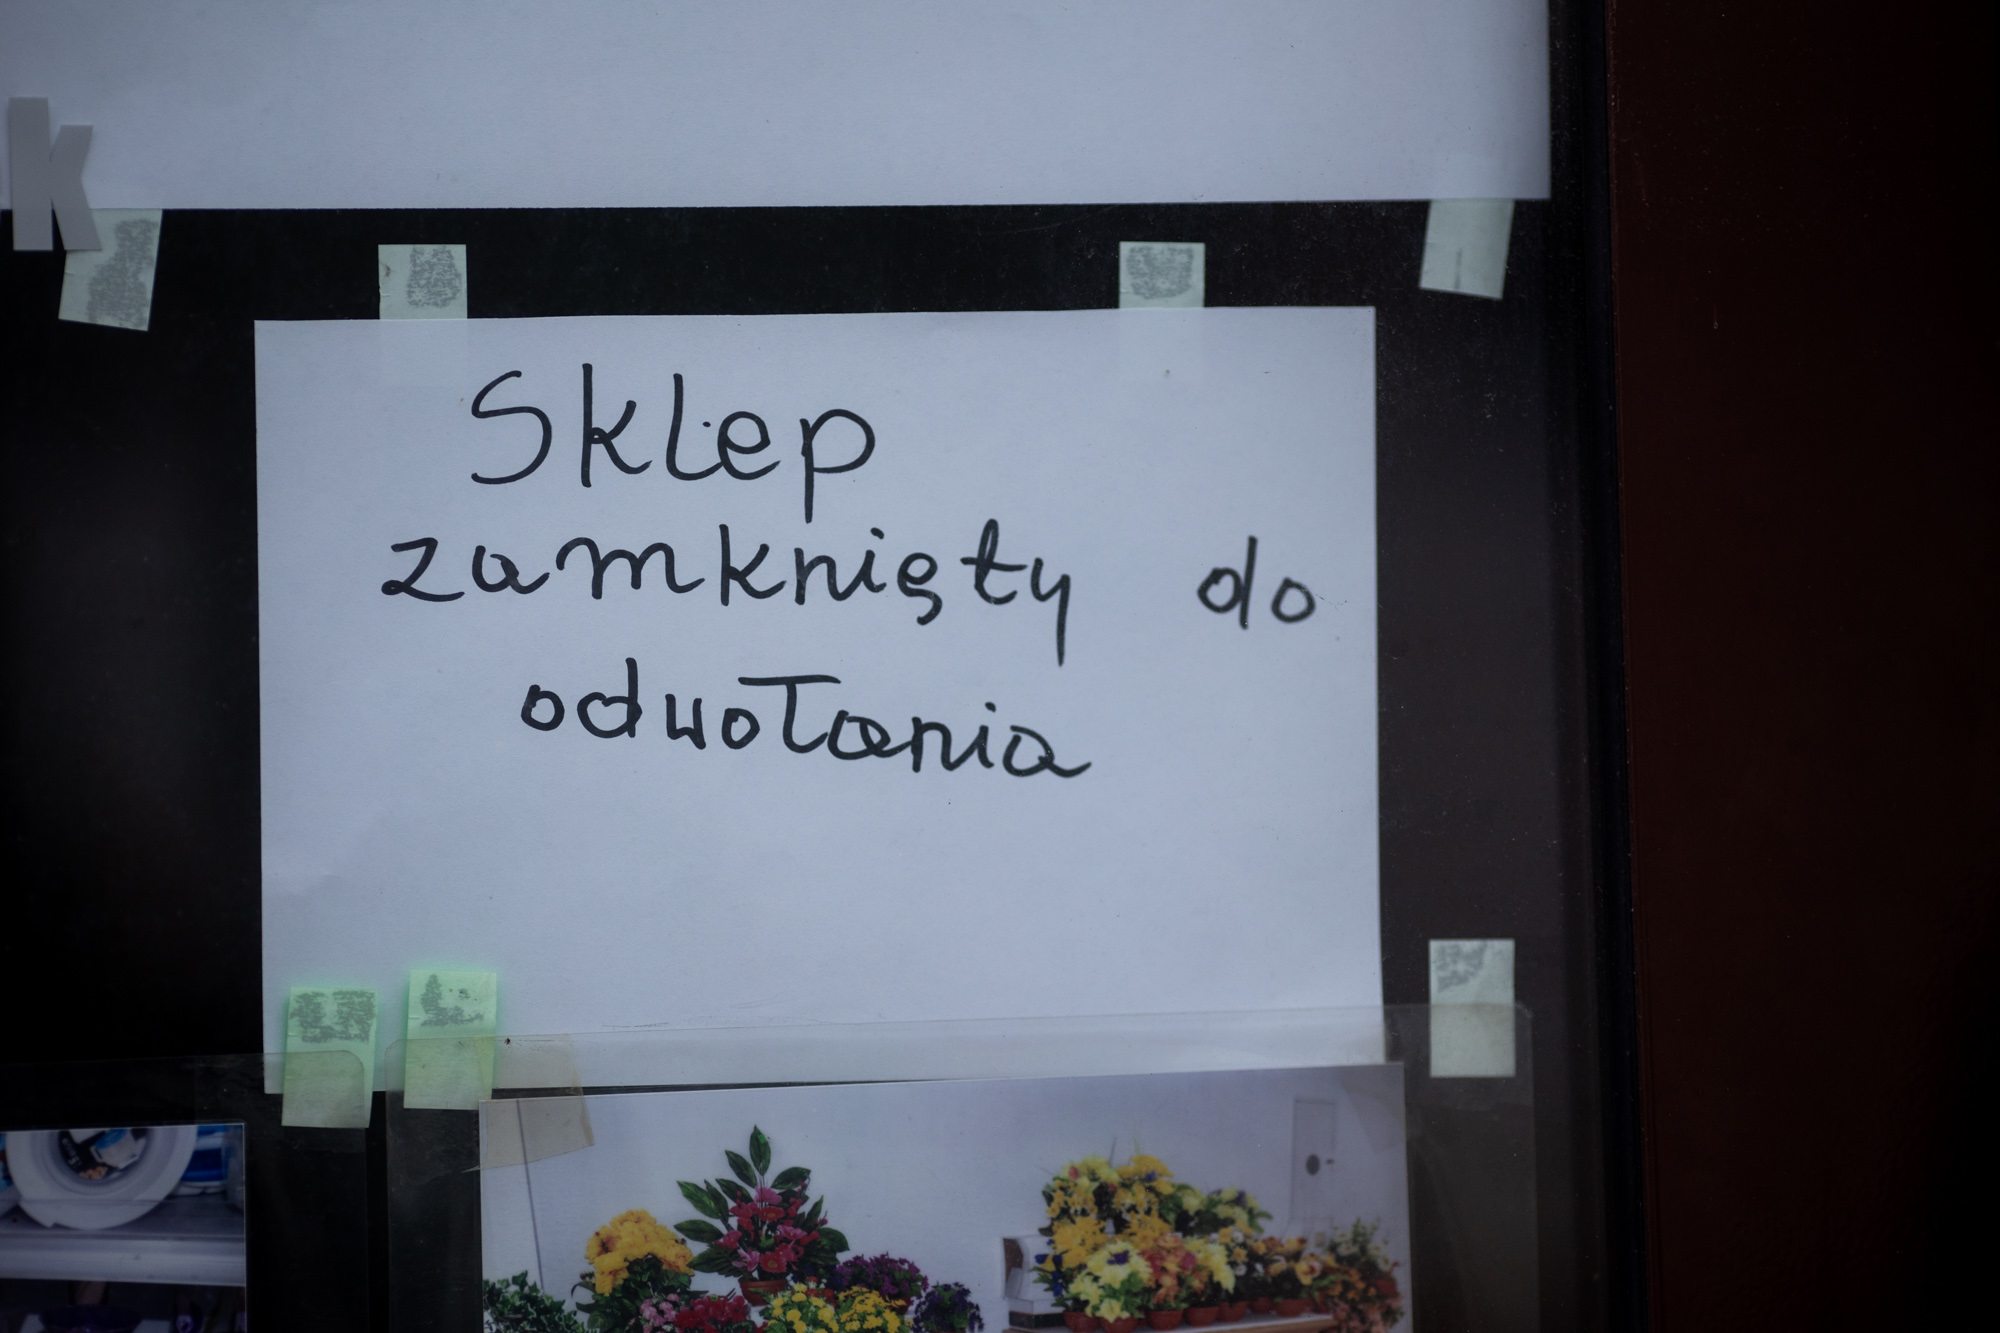 k
Sklep
zamknięty do
odwołania